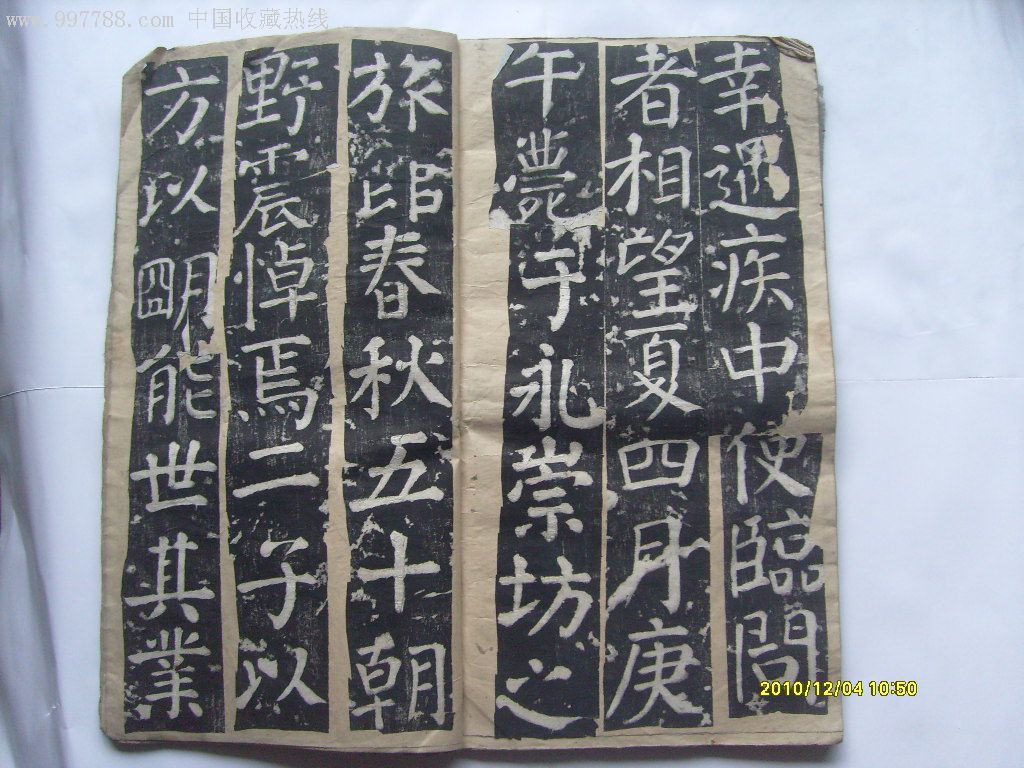 www.997788.com 中国收藏热线
幸遇疾中使臨問
者相望夏四月庚
午薨于永崇坊之
旅邸春秋五十朝
野震悼焉二子以
方以朙能世其業
2010/12/04 10:50